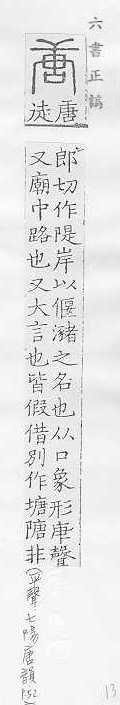 六書正譌
唐徒
郎切作隄岸以偃瀦之名也从口象形庚聲
又廟中路也又大言也皆假借別作塘隚非
(平聲七陽唐韻 P.52)
13